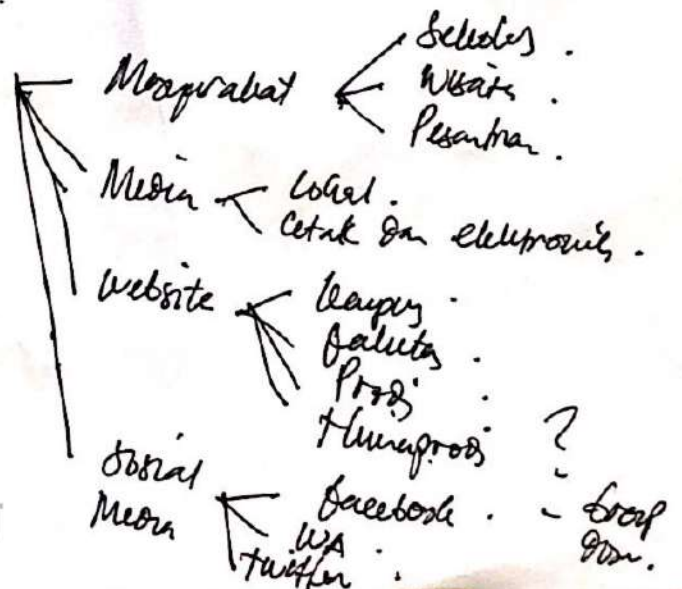 Masyarakat
Sekolah.
Wisata.
Pesantren.
Media
Lokal.
Cetak dan elektronik.
Website
Kampus.
Fakultas.
Prodi.
Himaprodi ?
Sosial
Media
facebook. - Group
WA.
Twitter.